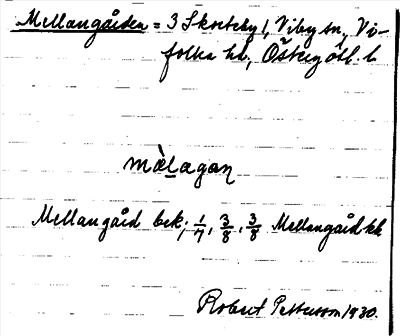 Mellangården = 3 Skorteby 1, Viby sn, Vi-
folka hd, Östergötl. l.
mæ̀lagaṇ
Mellangård bek; 1/7, 3/8, 3/8 Mellangård kk
Robert Pettersson 1930.